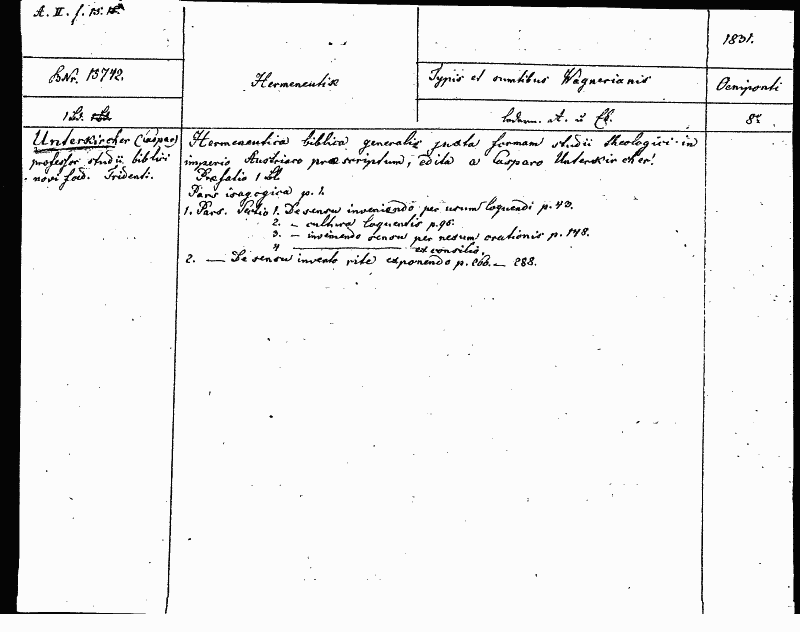 A. II. f. 15.
1831.
BNr. 13742.
Hermeneutik
Typis et sumtibus Wagnerianis
Oeniponti
1 Bd.
8º
Unterkircher (Caspar)
professor studii biblici
novi foed. Tridenti.
Hermeneutica biblica generalis juxta formam studii theologici in
imperio Austriaco praescriptum, edita a Casparo Unterkircher.
Praefatio 1 Bl
Pars isagogica p. 1.
1. Pars. Sectio 1. De sensu inveniendo per usum loquendi p. 43.
2. — cultura loquentis p. 96.
3. — inveniendo sensu per nexum orationis p. 148.
4 ——— ex consilio.
2. — De sensu invento rite exponendo p. 266. — 288.